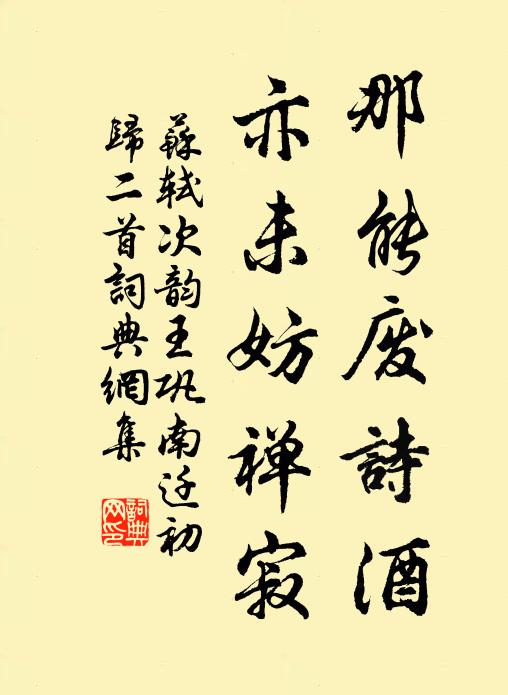 那能废詩酒
亦未妨禅寂
蘇軾次韵王巩南迁初
歸二首詞典網集
詞典
网印